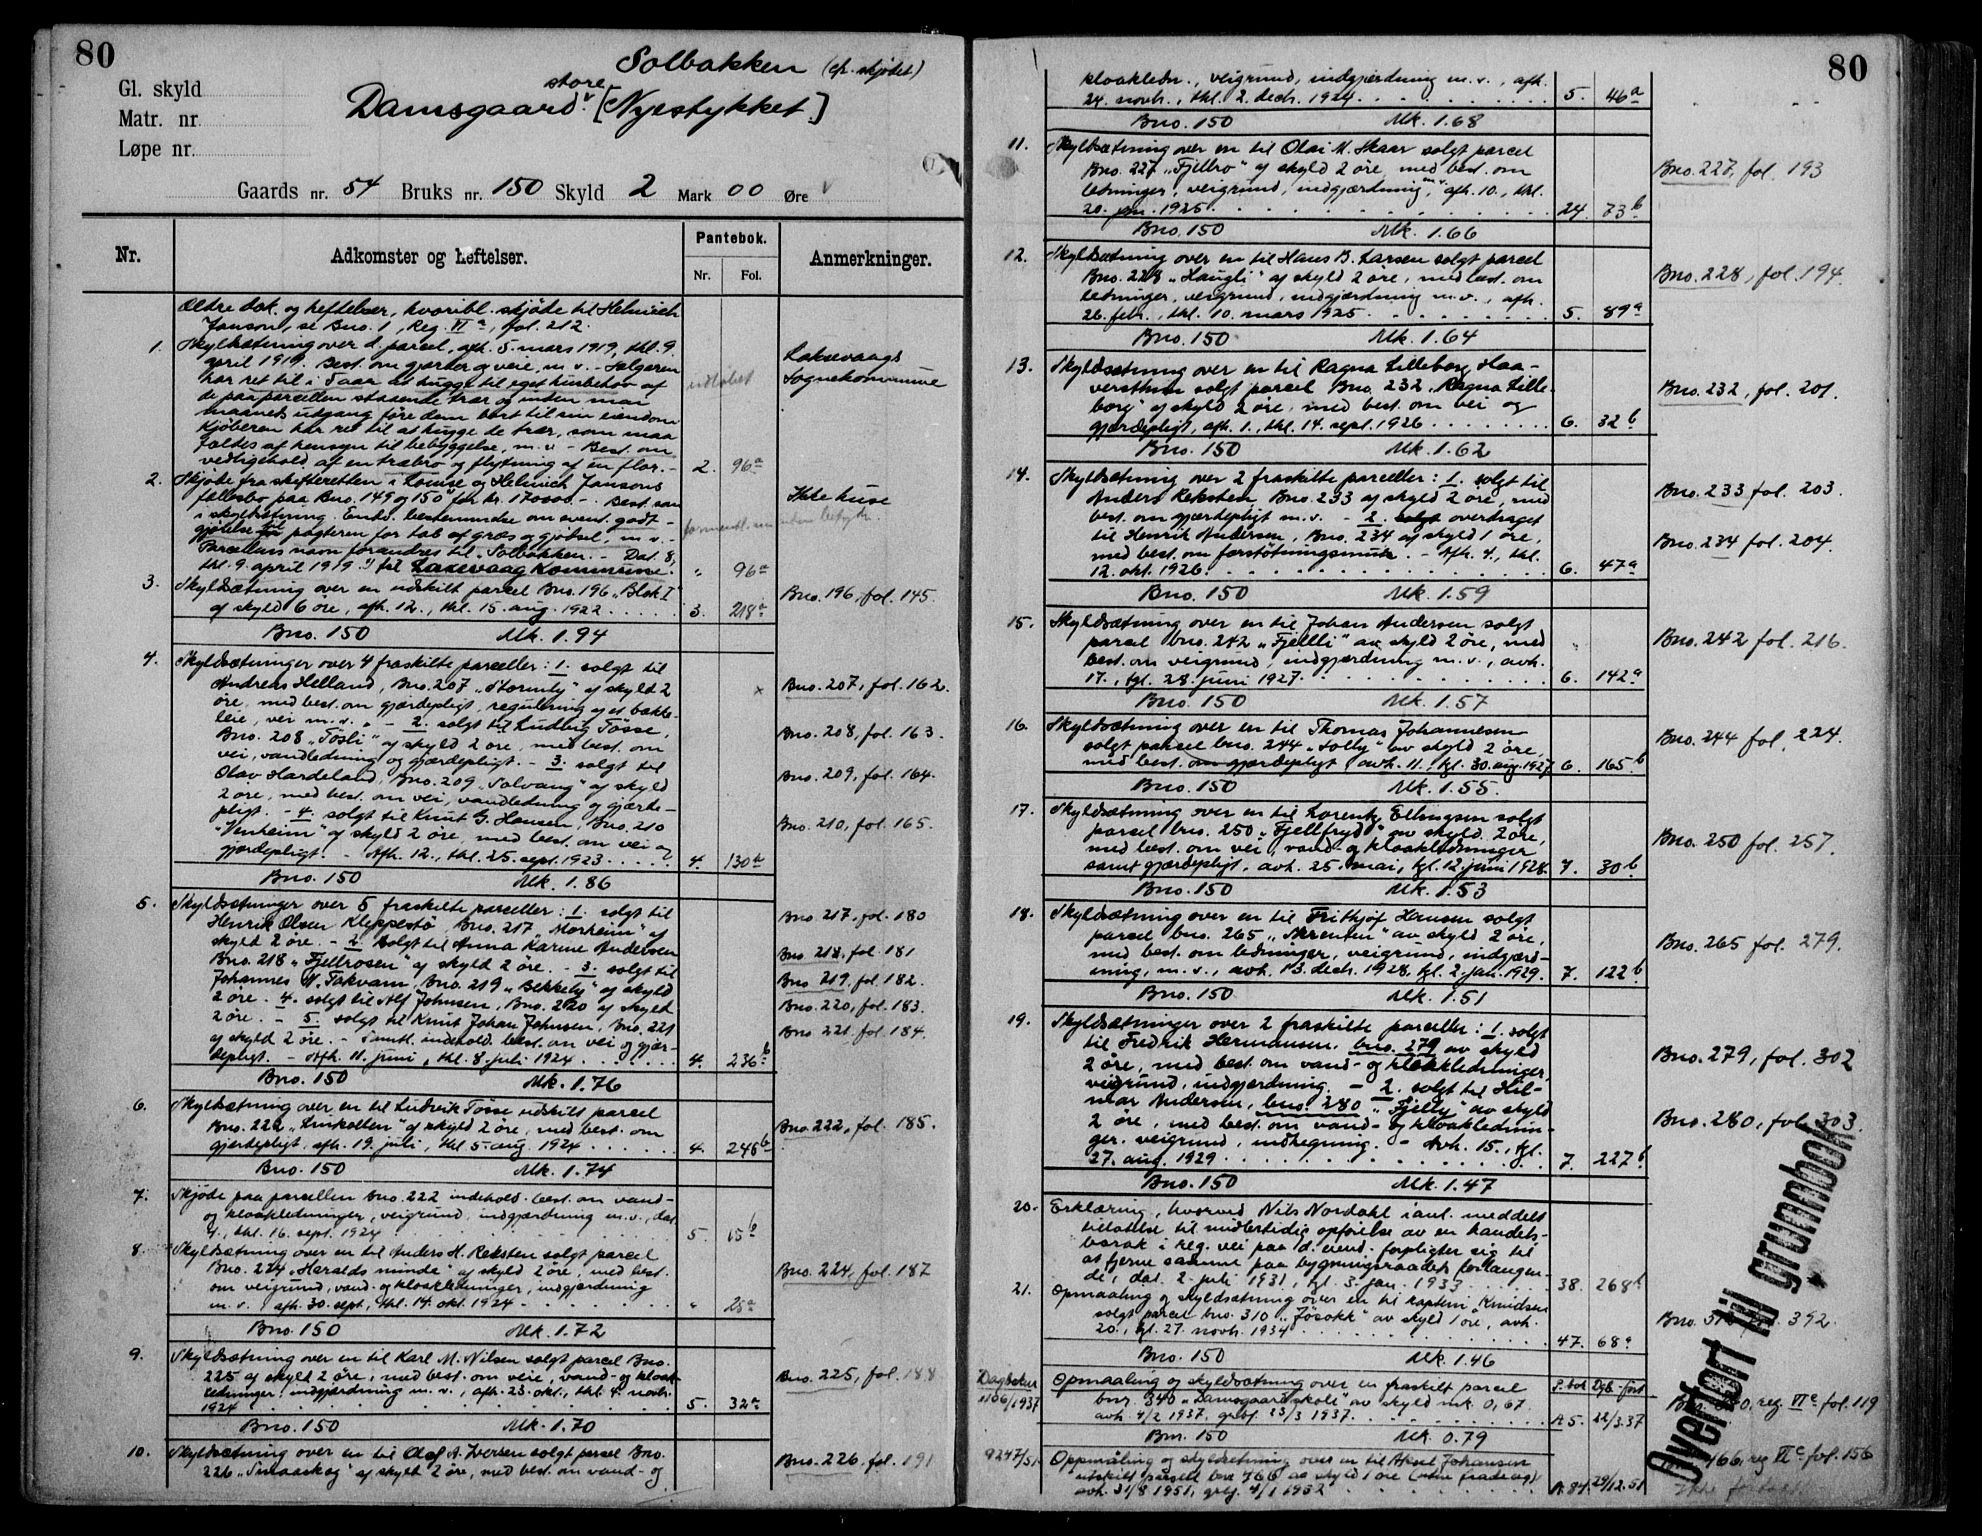 80
Gl. skyld
Matr. nr.
Løpe nr.
Solbakken (cfr. skjødet)
store
Damsgaard [Nyestykket]
Gaards nr. 54 Bruks nr. 150 Skyld 2 Mark 00 Øre
Nr.
Adkomster og heftelser.
Pantebok.
Nr. Fol.
Anmerkninger.
Ældre dok. og heftelser, hvoribl. skjøde til Helmich
Janson, se Bno. 1, Reg. VI a, fol. 212.
1. Skyldsætning over d. parcel, afh. 5. mars 1919, thl. 9.
april 1919. Best. om gjærder og veie, m. v. - Sælgeren
har ret til i 5 aar at hugge til eget husbehov af
de paa parcellen staaende trær og inden mai
maaneds udgang føre dem bort til sin eiendom
Kjøberen har ret til at hugge de trær, som maa
fældes af hensyn til bebyggelse, m. v. - Best. om
vedligehold af en træbro og flytning af en flor. - 2. 96a
udslettet
Laksevaags
Sognekommune
2. Skjøde fra skifteretten i Louise og Helmich Jansons
fællesbo paa Bno. 149 og 150 for kr. 170000.-. Best. som
i skyldsætning. Endv. bestemmelse om event. godt-
gjørelse til pagteren for tab af græs og gjødsel, m. v. -
Parcellens navn forandres til "Solbakken. - Dat. 8,
thl. 9. april 1919. Til Laxevaag Kommune. " 96a
Ikke huse
uten betydn.
3. Skyldsætning over en udskilt parcel Bno. 196 "Blok I"
af skyld 6 øre, afh. 12., thl. 15. aug. 1922. 3. 218a
Bno. 196, fol. 145.
Bno. 150 Mk. 1.94
4. Skyldsætninger over 4 fraskilte parceller: 1. solgt til
Andreas Helland, Bno. 207 "Stormly" af skyld 2
øre, med best. om gjærdepligt, regulering af et bække-
leie, vei m. v. - 2. solgt til Ludvig Tösse,
Bno. 208 "Tösli" af skyld 2 øre, med best. om
vei, vandledning og gjærdepligt. - 3. solgt til
Olav Hardeland, Bno. 209 "Solvang" af skyld
2 øre, med best. om vei, vandledning og gjærde-
pligt. - 4. solgt til Knut G. Hansen, Bno. 210
"Venheim" af skyld 2 øre, med best. om vei og
gjærdepligt. - Afh. 12., thl. 25. sept. 1923. 4. 130a
Bno. 207, fol. 162.
Bno. 208, fol. 163.
Bno. 209, fol. 164.
Bno. 210, fol. 165.
Bno. 150 Mk. 1.86
5. Skyldsætninger over 5 fraskilte parceller: 1. solgt til
Henrik Olsen Kleppestö, Bno. 217 "Morheim" af
skyld 2 øre. - 2. solgt til Anna Karine Andersen
Bno. 218 "Fjellrosen" af skyld 2 øre. - 3. solgt til
Johannes N. Takvam, Bno. 219 "Bekkely" af skyld
2 øre. 4. solgt til Alf Johnsen, Bno. 220 af skyld
2 øre. - 5. solgt til Knut Johan Johnsen, Bno. 221
af skyld 2 øre. - Samtl. indehold. best. om vei og gjær-
depligt. - Afh. 11. juni, thl. 8. juli 1924. 4. 236b
Bno. 217, fol. 180
Bno. 218, fol. 181
Bno. 219, fol. 182.
Bno. 220, fol. 183.
Bno. 221, fol. 184.
Bno. 150 Mk. 1.76
6. Skyldsætning over en til Ludvik Tösse udskilt parcel
Bno. 222 af skyld 2 øre, med best. om
gjærdepligt, afh. 19. juli, thl. 5. aug. 1924. 4. 248b
Bno. 222, fol. 185.
Bno. 150 Mk. 1.74
7. Skjøde paa parcellen bno. 222 indehold. best. om vand-
og kloakledninger, veigrund, indgjærdning m. v., dat.
4., thl. 16. sept. 1924. 5. 15b
8. Skyldsætning over en til Anders H. Reksten solgt parcel
Bno. 224 "Haralds minde" af skyld 2 øre, med best.
om veigrund, vand- og kloakledninger, indgjærdning
m. v., afh. 30. sept., thl. 14. okt. 1924. " 28a
Bno. 224, fol. 187
Bno. 150 Mk. 1.72
9. Skyldsætning over en til Karl M. Nilsen solgt parcel Bno.
225 af skyld 2 øre, med best. om veie, vand- og kloak-
ledninger, indgjærdning m. v., afh. 23. okt., thl. 4. novb.
1924. 5. 32a
Bno. 225, fol. 188
Bno. 150 Mk. 1.70
10. Skyldsætning over en til Olaf A. Iversen solgt parcel Bno.
226 "Smaaskog" af skyld 2 øre, med best. om vand- og
Bno. 226, fol. 191
80
kloakledn., veigrund, indgjærdning m. v., afh.
24. novb., thl. 2. decb. 1924. 5. 46a
Bno. 150 Mk. 1.68
11. Skyldsætning over en til Olai M. Skaar solgt parcel
Bno. 227 "Fjellbro" af skyld 2 øre, med best. om
ledninger, veigrund, indgjærdning m.v., afh. 10., thl.
20. jan. 1925. 24. 73b
Bno. 227, fol. 193
Bno. 150 Mk. 1.66
12. Skyldsætning over en til Hans B. Larsen solgt parcel
Bno. 228 "Haugli" af skyld 2 øre, med best. om
ledninger, veigrund, indgjærdning m. v., afh.
26. febr., thl. 10. mars 1925. 5. 89a
Bno. 228, fol. 194.
Bno. 150 Mk. 1.64
13. Skyldsætning over en til Ragna Lilleborg Haa-
versthun solgt parcel Bno. 232 "Ragna Lille-
borg" af skyld 2 øre, med best. om vei og
gjærdepligt, afh. 1., thl. 14. sept. 1926. 6. 32b
Bno. 232, fol. 201.
Bno. 150 Mk. 1.62
14. Skyldsætning over 2 fraskilte parceller: 1. solgt til
Anders Reksten Bno. 233 af skyld 2 øre, med
best. om gjærdepligt m. v. - 2. solgt overdraget
til Henrik Andersen, Bno. 234 af skyld 1 øre,
med best. om forstøtningsmur. - Afh. 4., thl.
12. okt. 1926. 6. 47a
Bno. 233 fol. 203.
Bno. 234 fol. 204.
Bno. 150 Mk. 1.59
15. Skyldsætning over en til Johan Andersen solgt
parcel bno. 242 "Fjellli" av skyld 2 øre, med
best. om veigrund, indgjærdning m. v., avh.
17., tgl. 28. juni 1927. 6. 142a
Bno. 242 fol. 216.
Bno. 150 Mk. 1.57
16. Skyldsætning over en til Thomas Johannesen
solgt parcel bno. 244 "Solly" av skyld 2 øre,
med best. om gjærdepligt avh. 11., tgl. 30. aug. 1927 6. 165b
Bno. 244 fol. 224.
Bno. 150 Mk. 1.55.
17. Skyldsætning over en til Lorentz Ellingsen solgt
parcel bno. 250 "Fjellfryd" av skyld 2 øre,
med best. om vei, vand- og kloakledninger
samt gjærdepligt, avh. 25. mai, tgl. 12. juni 1928. 7. 30b
Bno. 250 fol. 257.
Bno. 150 Mk. 1.53
18. Skyldsætning over en til Frithjof Hansen solgt
parcel bno. 265 "Skrenten" av skyld 2 øre,
med best. om ledninger, veigrund, indgjærd-
ning, m. v., avh. 13. decb. 1928, tgl. 2. jan. 1929. 7. 122b
Bno. 265 fol. 279.
Bno. 150 Mk. 1.51
19. Skyldsætninger over 2 fraskilte parceller: 1. solgt
til Fredrik Hermansen, bno. 279 av skyld
2 øre, med best. om vand- og kloakledninger,
veigrund, indgjærdning. - 2. solgt til Hil-
mar Andersen, bno. 280 "Fjelly" av skyld
2 øre, med best. om vand- og kloaklednin-
ger, veigrund, indhegning. - Avh. 15., tgl.
27. aug. 1929. 7. 227b
Bno. 279, fol. 302
Bno. 280, fol. 303.
Bno. 150 Mk. 1.47
20. Erklæring, hvorved Nils Nordahl i anl. meddelt
tilladelse til midlertidig opførelse av en handels-
barak i reg. vei paa d. eiend. forpligter sig til
at fjerne samme paa bygningsraadets forlangen-
de, dat. 2. juli 1931, tgl. 3. jan. 1933. 38. 268b
21. Opmaaling og skyldsætning over en til kaptein Knudsen
solgt parcel bno. 310 "Jösokk" av skyld 1 øre, avh.
20., tgl. 27. novb. 1934. 47. 68a
Bno. 310 fol. 392.
Bno. 150 Mk. 1.46
Dagboken
1106/1937
Opmaaling og skyldsætning over en fraskilt parcel
bnr. 340 "Damsgaard skole" av skyld mk. 0,67.
avh. 4/2 1937, grbf. 23/3 1937.
P.bok Dgb.-ført
A 5. 22/3.37
Bnr. 340, reg. VI c fol. 119
Bnr. 150 Mk 0.79
9247/51
Oppmåling og skyldsetning over en til Aksel Johansen
utskilt parsell bnr 466 av skyld 1 øre
avh. 31/8 1951, grbf. 4/1 1952
A.84. 29/12.51
466, reg VI c fol. 156
Overført til grunnbok